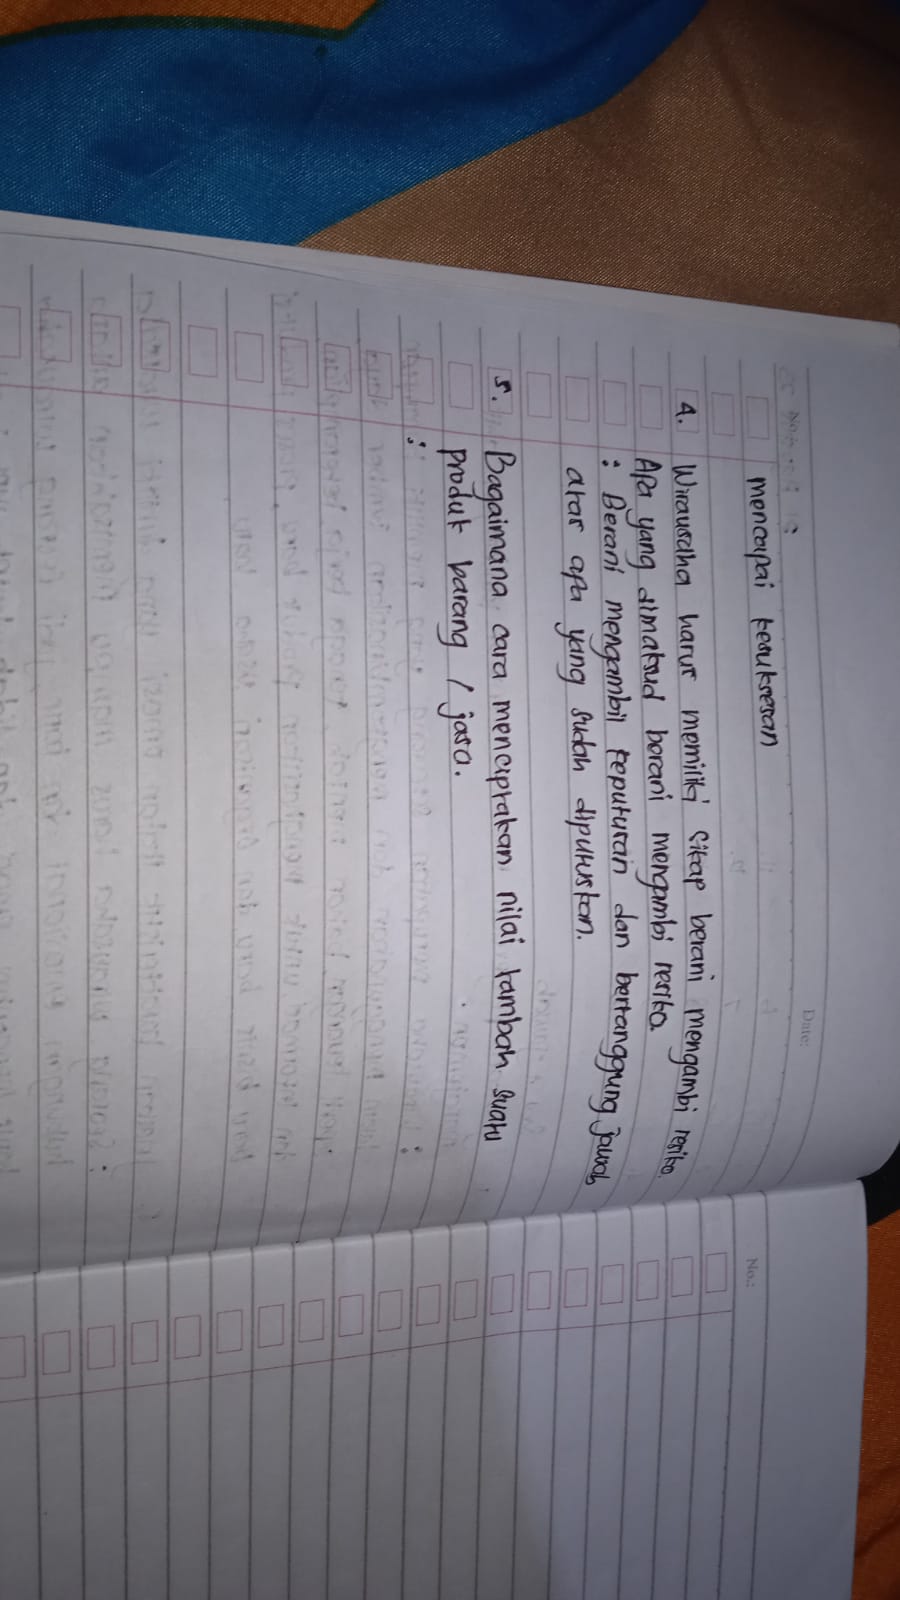 No.:
Date:
mencapai kesuksesan
4. Wirausaha harus memiliki sikap berani mengambi resiko.
Apa yang dimaksud berani mengambi resiko.
: Berani mengambil keputusan dan bertanggung jawab
atas apa yang sudah diputuskan.
5. Bagaimana cara menciptakan nilai tambah suatu
produk barang / jasa.
:
No.: